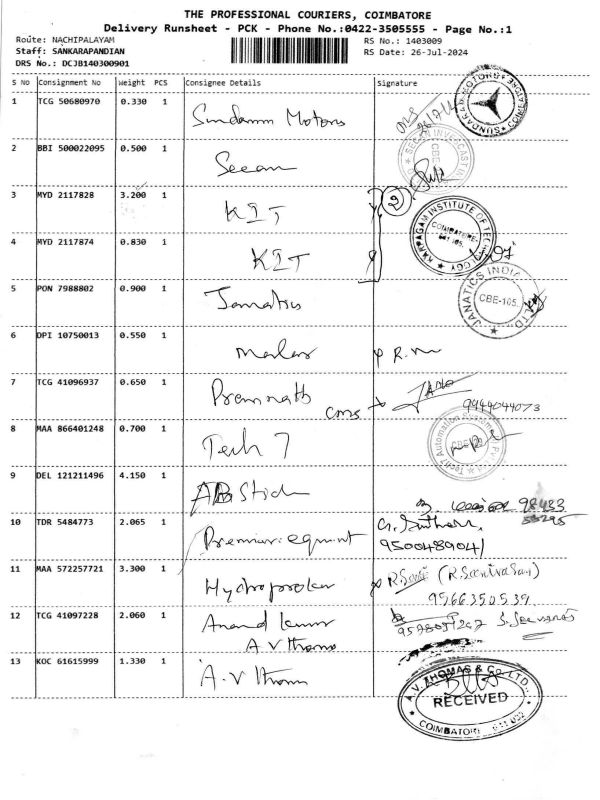 THE PROFESSIONAL COURIERS, COIMBATORE
Delivery Runsheet - PCK - Phone No.:0422-3505555 - Page No.:1
Route: NACHIPALAYAM
RS No.: 1403009
Staff: SANKARAPANDIAN
RS Date: 26-Jul-2024
DRS No.: DCJB140300901
S No Consignment No Weight PCS Consignee Details Signature
1 TCG 50680970 0.330 1 Sundaram Motors
SUNDARAM MOTORS
2 BBI 500022095 0.500 1 Secan
SECAN INVESCAST IN
CBE
3 MYD 2117828 3.200 1 KIT
2
KARPAGAM INSTITUTE OF TECHNOLOGY
COIMBATORE
641 105.
4 MYD 2117874 0.830 1 KIT
5 PON 7988802 0.900 1 Janatics
JANATICS INDIA LTD.
CBE-105.
6 DPI 10750013 0.550 1 Malar R.
7 TCG 41096937 0.650 1 Premnath
Cons
9944044073
8 MAA 866401248 0.700 1 Tech 7
Tech7 Automation
CBE
9 DEL 121211496 4.150 1 Stick
98433
53295
10 TDR 5484773 2.065 1 Premiar equment
9500489041
11 MAA 572257721 3.300 1 R. (R. Seenivasan)
9566350539
12 TCG 41097228 2.060 1 Anand kumar
A.V Thomas
13 KOC 61615999 1.330 1 A.V Thomas
A.V. THOMAS & Co. LTD.,
RECEIVED
COIMBATORE